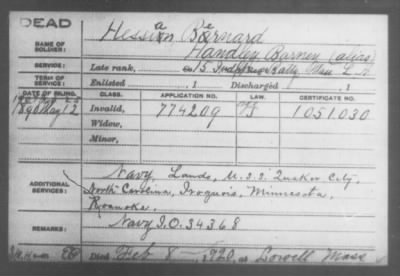 DEAD
Hessian Bernard
NAME OF SOLDIER:
Handley Barney (alias)
SERVICE:
Late rank,
15 Ind Batty, Mass L. A
TERM OF SERVICE:
Enlisted , 1 Discharged , 1
DATE OF FILING. CLASS. APPLICATION NO. LAW. CERTIFICATE NO.
1890 May 12 Invalid, 774209 1051.030
Widow,
Minor,
ADDITIONAL SERVICES:
Navy, Lands, U.S.S. Quaker City,
North Carolina, Iroquois, Minnesota,
Roanoke.
REMARKS:
Navy I.O. 34368
Died Feb 8 - 1920, at Lowell Mass